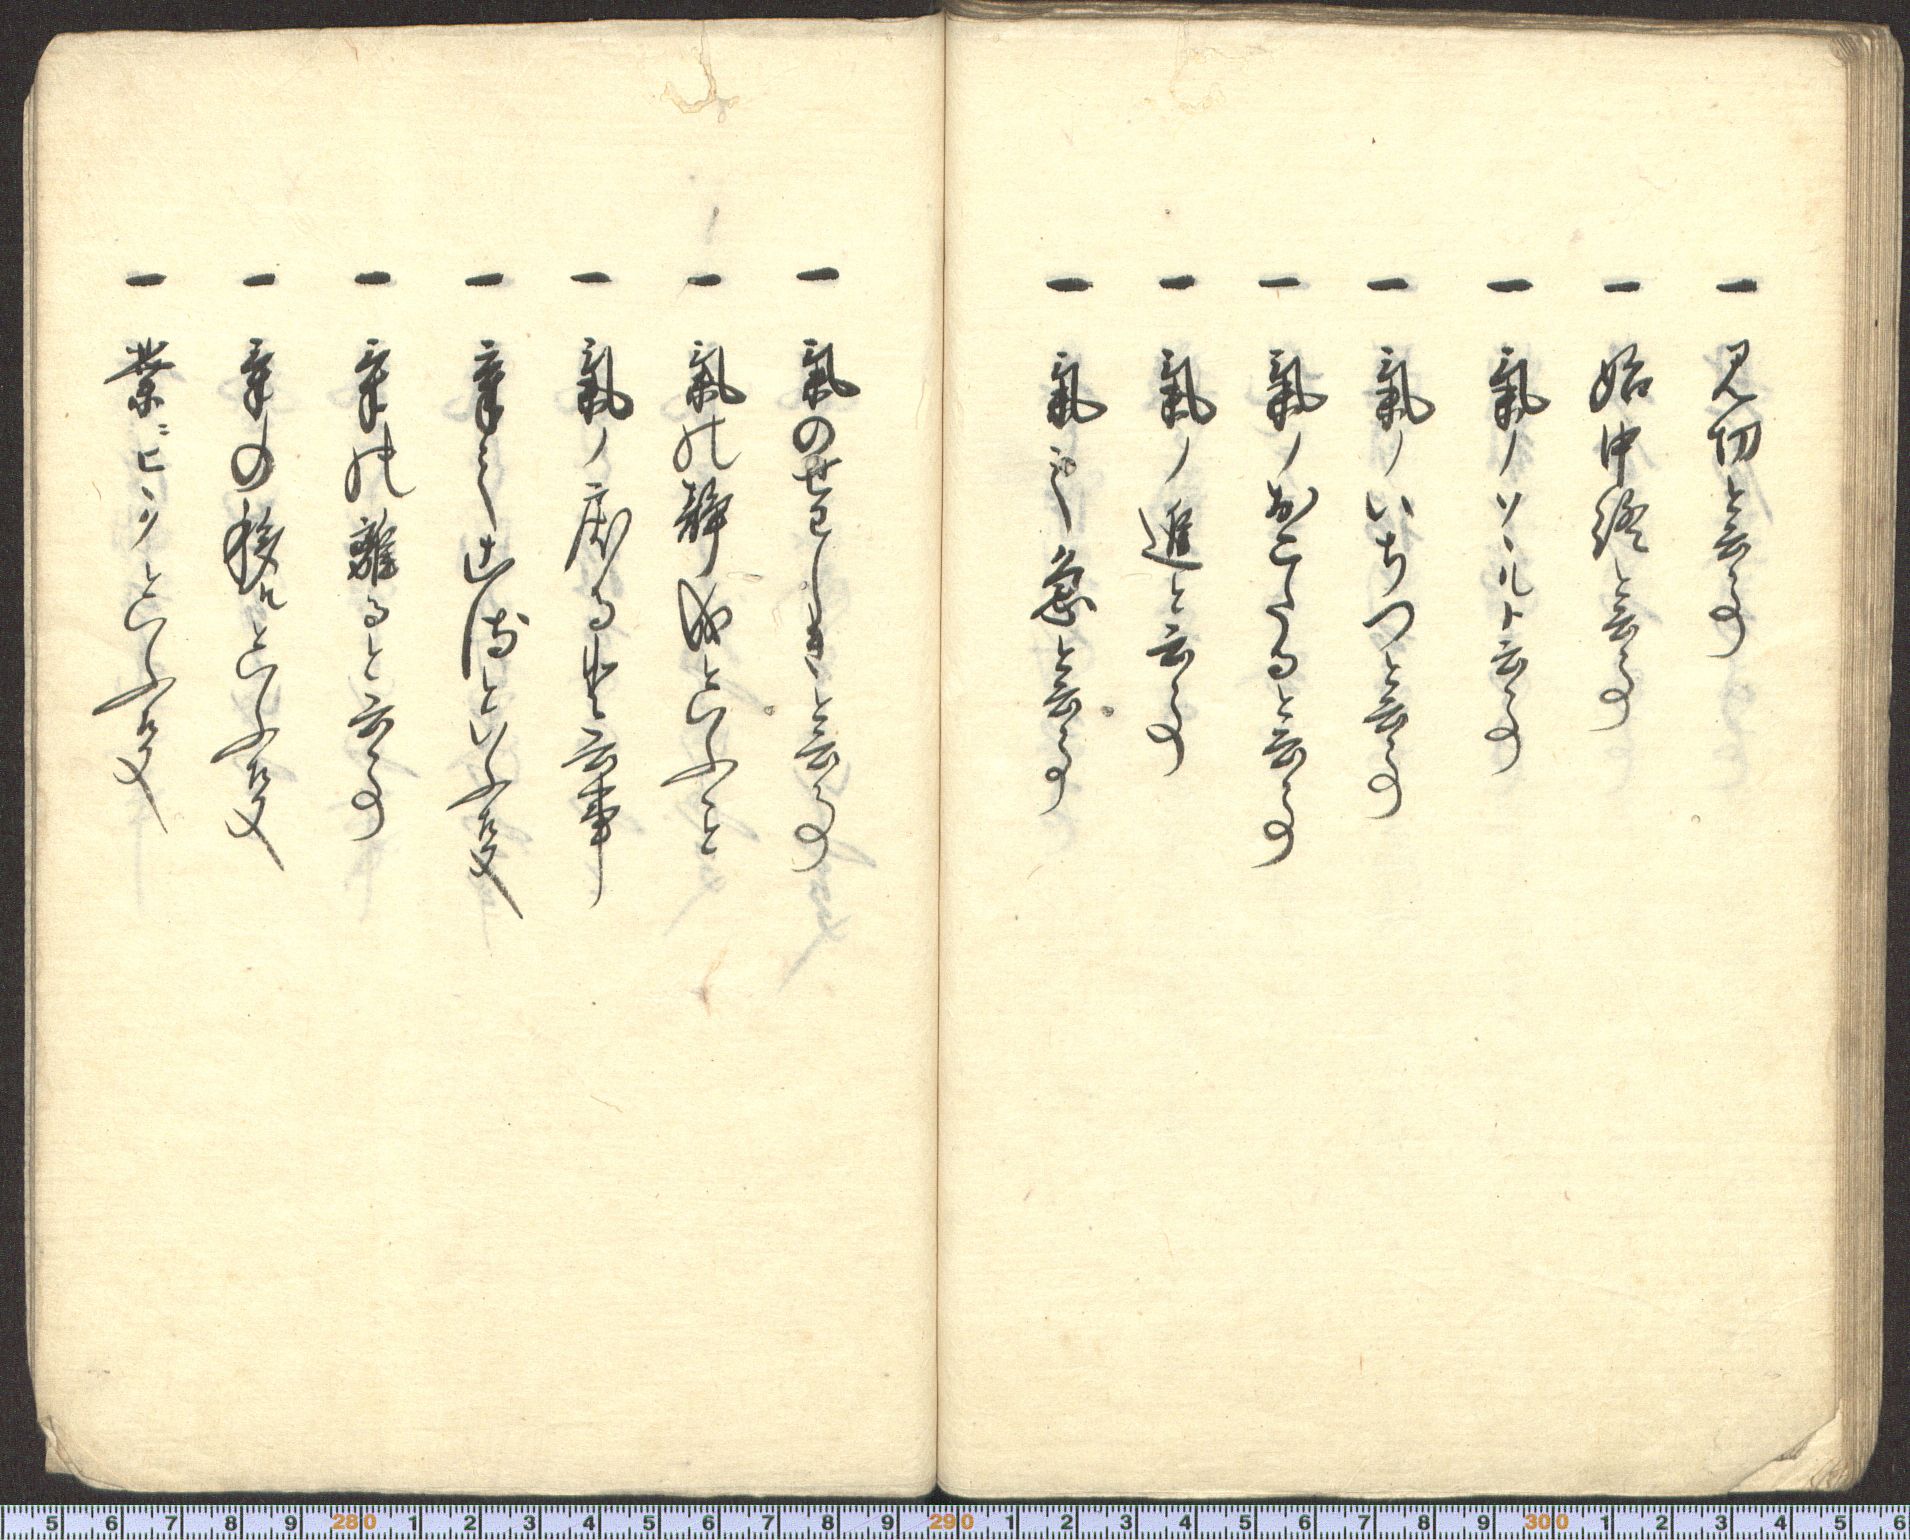 一 見切と云事
一 始中終と云事
一 氣ノソヽルト云事
一 氣ノいちつと云事
一 氣ノおこたると云事
一 氣ノ進と云事
一 氣之急と云事
一 氣のせわしきと云事
一 氣の静成といふこと
一 氣ノ居ると云事
一 といふ事
一 の離ると云事
一 の移りといふ事
一 業ニビヽリといふ事
5 6 7 8 9 280 1 2 3 4 5 6 7 8 9 290 1 2 3 4 5 6 7 8 9 300 1 2 3 4 5 6